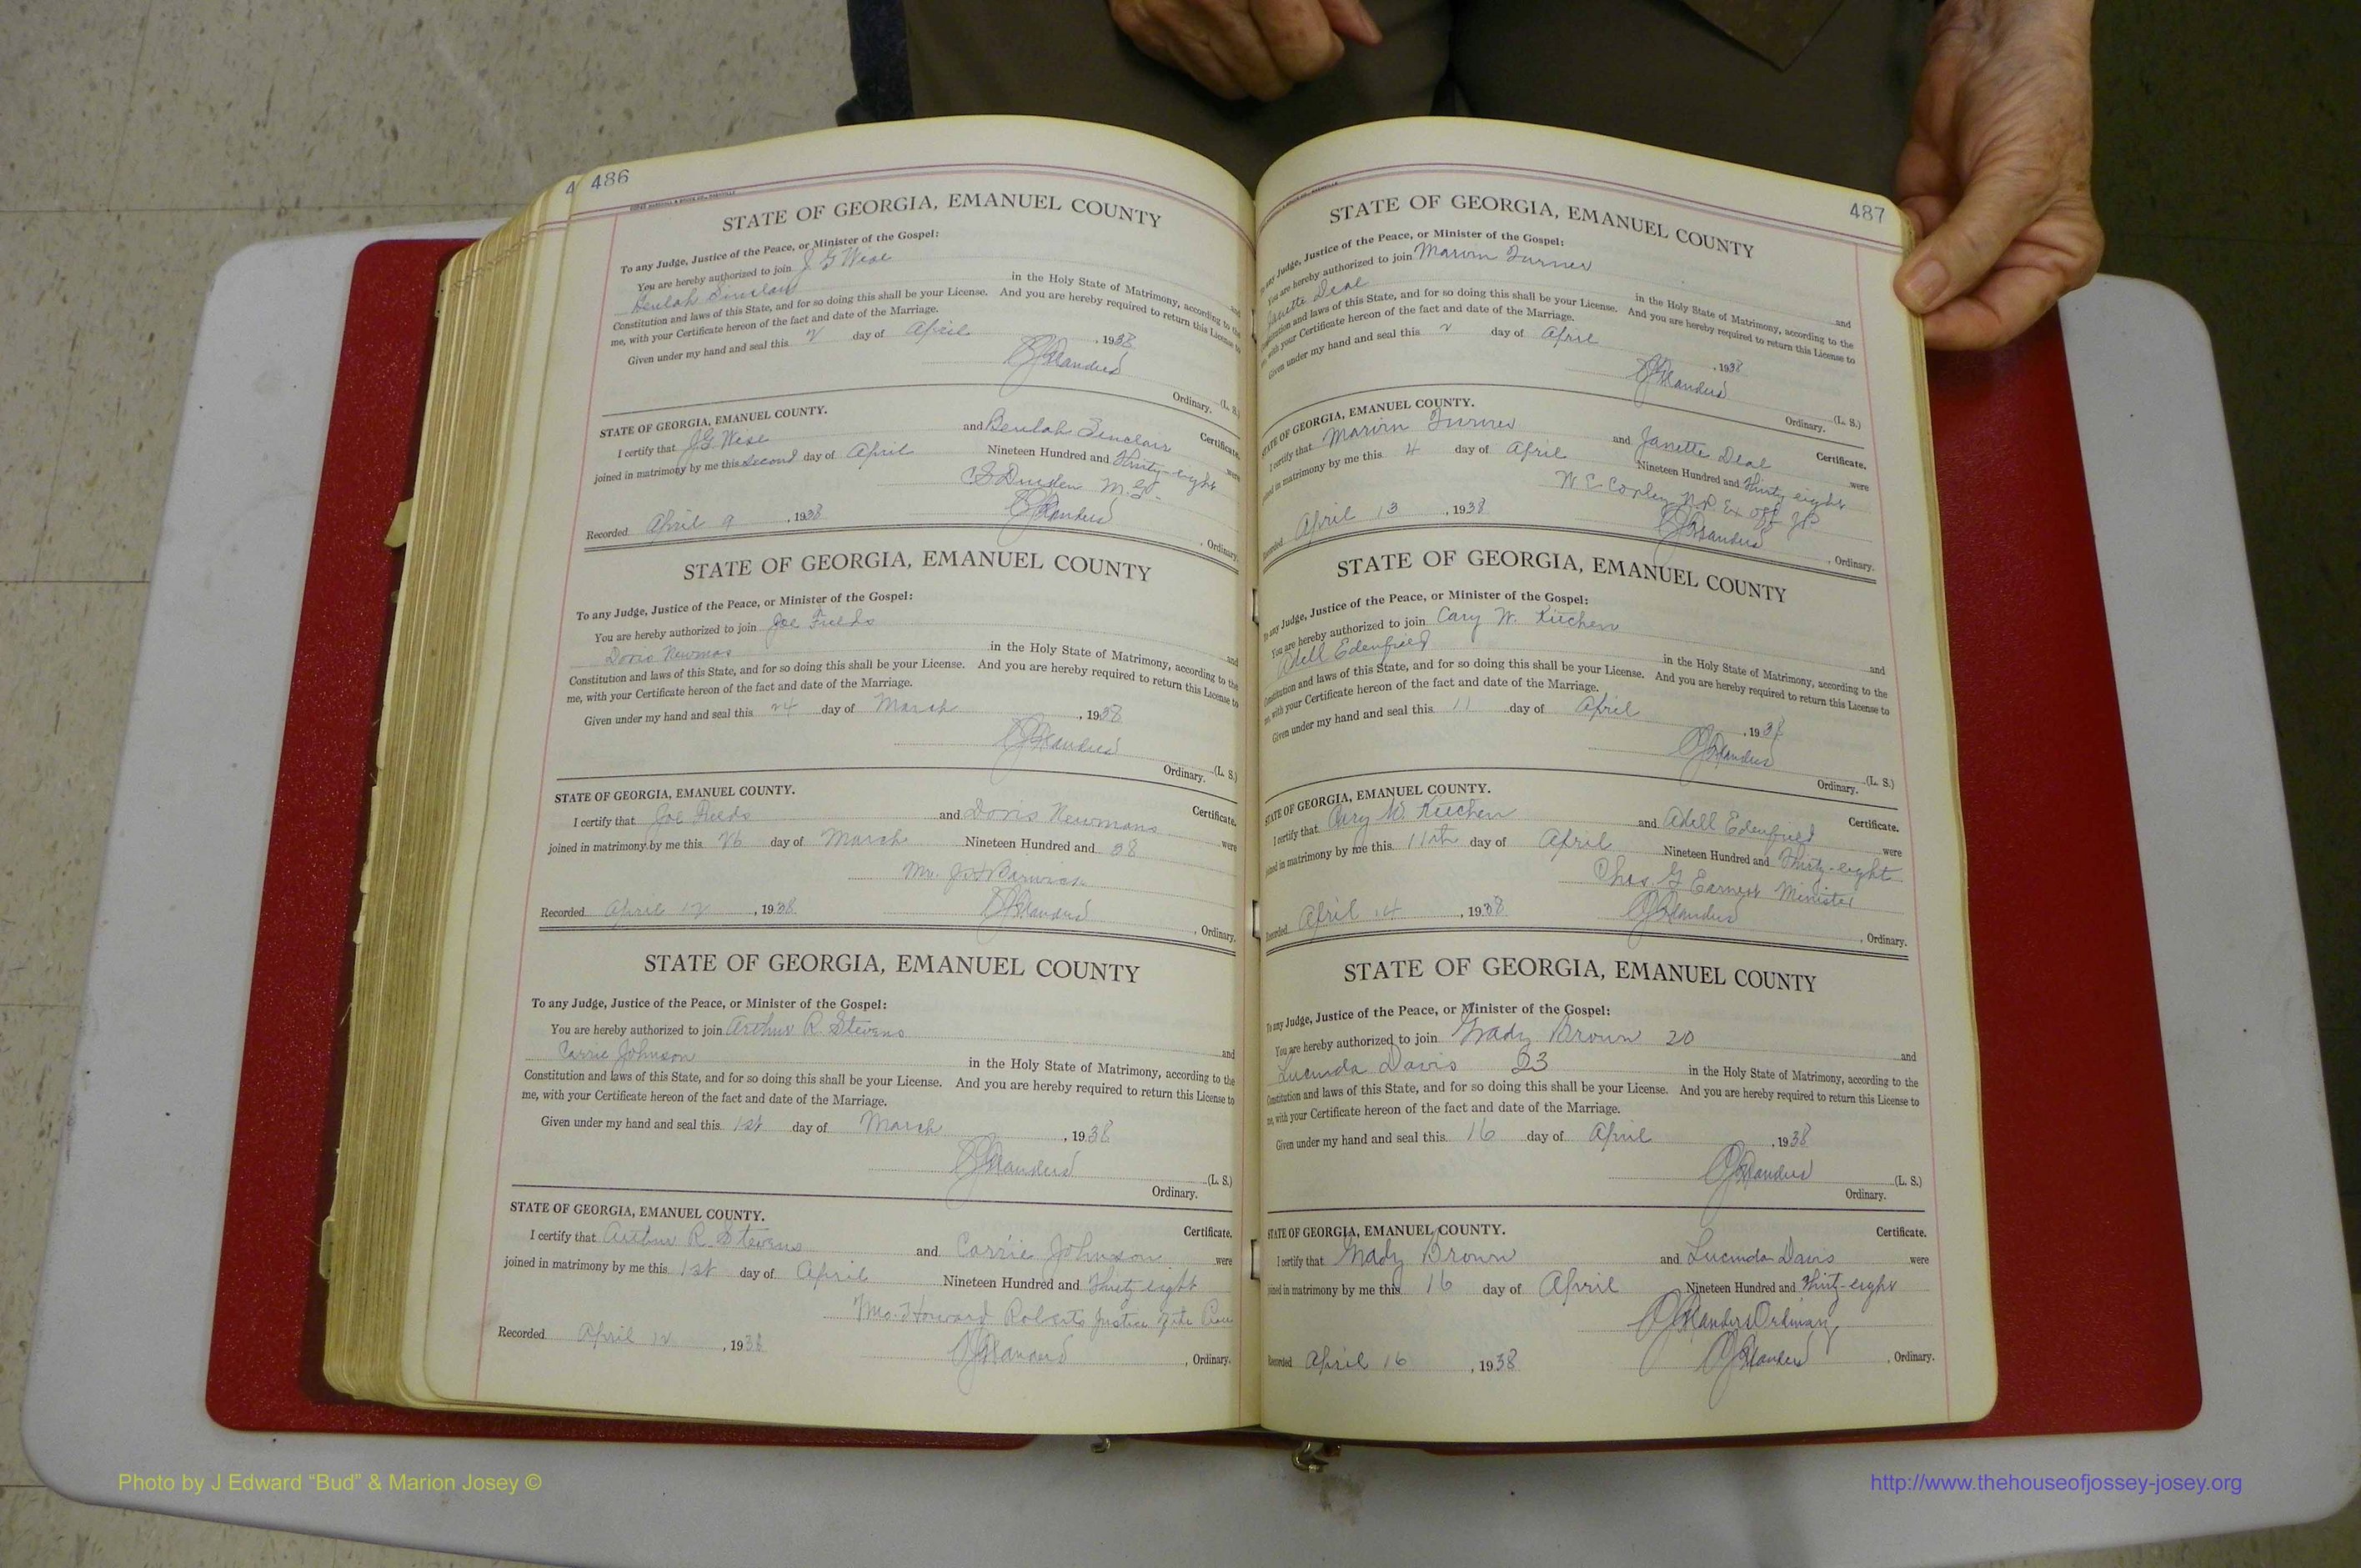 486
STATE OF GEORGIA, EMANUEL COUNTY
To any Judge, Justice of the Peace, or Minister of the Gospel:
You are hereby authorized to join J G Wise and
Beulah Sinclair in the Holy State of Matrimony, according to the
Constitution and laws of this State, and for so doing this shall be your License. And you are hereby required to return this License to
me, with your Certificate hereon of the fact and date of the Marriage.
Given under my hand and seal this 2 day of April, 1938
(L. S.)
Ordinary.
STATE OF GEORGIA, EMANUEL COUNTY.
Certificate.
I certify that J.G Wise and Beulah Sinclair were
joined in matrimony by me this second day of April Nineteen Hundred and Thirty-eight
C S Durden M.G.
Recorded April 9, 1938 , Ordinary.
STATE OF GEORGIA, EMANUEL COUNTY
To any Judge, Justice of the Peace, or Minister of the Gospel:
You are hereby authorized to join Joe Fields and
Doris Newmas in the Holy State of Matrimony, according to the
Constitution and laws of this State, and for so doing this shall be your License. And you are hereby required to return this License to
me, with your Certificate hereon of the fact and date of the Marriage.
Given under my hand and seal this 24 day of March, 1938
(L. S.)
Ordinary.
STATE OF GEORGIA, EMANUEL COUNTY.
Certificate.
I certify that Joe Fields and Doris Newmans were
joined in matrimony by me this 26 day of March Nineteen Hundred and 38
Barwick
Recorded April 12, 1938 , Ordinary.
STATE OF GEORGIA, EMANUEL COUNTY
To any Judge, Justice of the Peace, or Minister of the Gospel:
You are hereby authorized to join Arthur R. Stevens and
Carrie Johnson in the Holy State of Matrimony, according to the
Constitution and laws of this State, and for so doing this shall be your License. And you are hereby required to return this License to
me, with your Certificate hereon of the fact and date of the Marriage.
Given under my hand and seal this 1st day of March, 1938
(L. S.)
Ordinary.
STATE OF GEORGIA, EMANUEL COUNTY.
Certificate.
I certify that Arthur R. Stevens and Carrie Johnson were
joined in matrimony by me this 1st day of April Nineteen Hundred and Thirty eight
Howard Roberts Justice of the
Recorded April 12, 1938 , Ordinary.
487
STATE OF GEORGIA, EMANUEL COUNTY
any Judge, Justice of the Peace, or Minister of the Gospel:
You are hereby authorized to join Marvin Turner and
Janette Deal in the Holy State of Matrimony, according to the
Constitution and laws of this State, and for so doing this shall be your License. And you are hereby required to return this License to
me, with your Certificate hereon of the fact and date of the Marriage.
Given under my hand and seal this 2 day of April, 1938
(L. S.)
Ordinary.
STATE OF GEORGIA, EMANUEL COUNTY.
Certificate.
I certify that Marvin Turner and Janette Deal were
joined in matrimony by me this 4 day of April Nineteen Hundred and Thirty eight
W E Copley N.P. Ex off JP
Recorded April 13, 1938 , Ordinary.
STATE OF GEORGIA, EMANUEL COUNTY
To any Judge, Justice of the Peace, or Minister of the Gospel:
You are hereby authorized to join Cary W. Kitchen and
Adell Edenfield in the Holy State of Matrimony, according to the
Constitution and laws of this State, and for so doing this shall be your License. And you are hereby required to return this License to
me, with your Certificate hereon of the fact and date of the Marriage.
Given under my hand and seal this 11 day of April, 1938
(L. S.)
Ordinary.
STATE OF GEORGIA, EMANUEL COUNTY.
Certificate.
I certify that Cary W. Kitchen and Adell Edenfield were
joined in matrimony by me this 11th day of April Nineteen Hundred and Thirty-eight
Chas. G Earnest Minister
Recorded April 14, 1938 , Ordinary.
STATE OF GEORGIA, EMANUEL COUNTY
To any Judge, Justice of the Peace, or Minister of the Gospel:
You are hereby authorized to join Grady Brown 20 and
Lucinda Davis 23 in the Holy State of Matrimony, according to the
Constitution and laws of this State, and for so doing this shall be your License. And you are hereby required to return this License to
me, with your Certificate hereon of the fact and date of the Marriage.
Given under my hand and seal this 16 day of April, 1938
(L. S.)
Ordinary.
STATE OF GEORGIA, EMANUEL COUNTY.
Certificate.
I certify that Grady Brown and Lucinda Davis were
joined in matrimony by me this 16 day of April Nineteen Hundred and Thirty-eight
Ordinary
Recorded April 16, 1938 , Ordinary.
Photo by J Edward “Bud” & Marion Josey ©
http://www.thehouseofjossey-josey.org